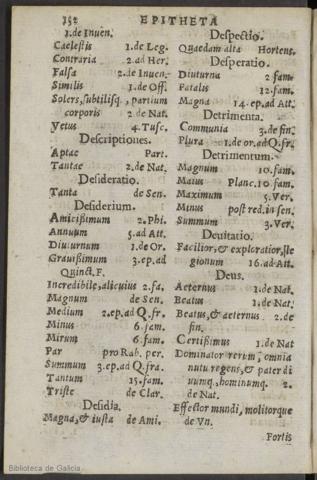 152 EPITHETA
1.de Inuen.
Caelestis 1.de Leg.
Contraria 2.ad Her.
Falsa 2.de Inuen.
Similis 1.de Off.
Solers, subtilisq́, partium
corporis 2.de Nat.
Vetus 4.Tusc.
Descriptiones.
Aptae Part.
Tantae 2.de Nat.
Desideratio.
Tanta de Sen.
Desiderium.
Amicissimum 2.Phi.
Annuum 5.ad Att.
Diuturnum 1.de Or.
Grauissimum 3.ep.ad
Quinct.F.
Incredibile, alicuius 2.fa.
Magnum de Sen.
Medium 2.ep.ad Q.fr.
Minus 6.fam.
Mirum 6.fam.
Par pro Rab. per.
Summum 3.ep.ad Q.fra.
Tantum 15.fam.
Triste de Clar.
Desidia.
Magna, & iusta de Ami.
Despectio.
Quaedam alta Hortens.
Desperatio.
Diuturna 2.fam.
Patalis 12.fam.
Magna 14.ep.ad Att.
Detrimenta.
Communia 3.de fin.
Plura 1.de or.ad Q.fr.
Detrimentum.
Magnum 10.fam.
Maius Planc.10.fam.
Maximum 5.Ver.
Minus post red.in sen.
Summum 3.Ver.
Deuitatio.
Facilior, & exploratior, le
gionum 16.ad Att.
Deus.
Aeternus 1.de Nat.
Beatus 1.de Nat.
Beatus, & aeternus 2.de
fin.
Certissimus 1.de Nat
Dominator rerum, omnia
nutu regens, & pater di
uumq́. hominumq́. 2.
de Nat.
Effector mundi, molitorque
de Vn.
Fortis
Biblioteca de Galicia